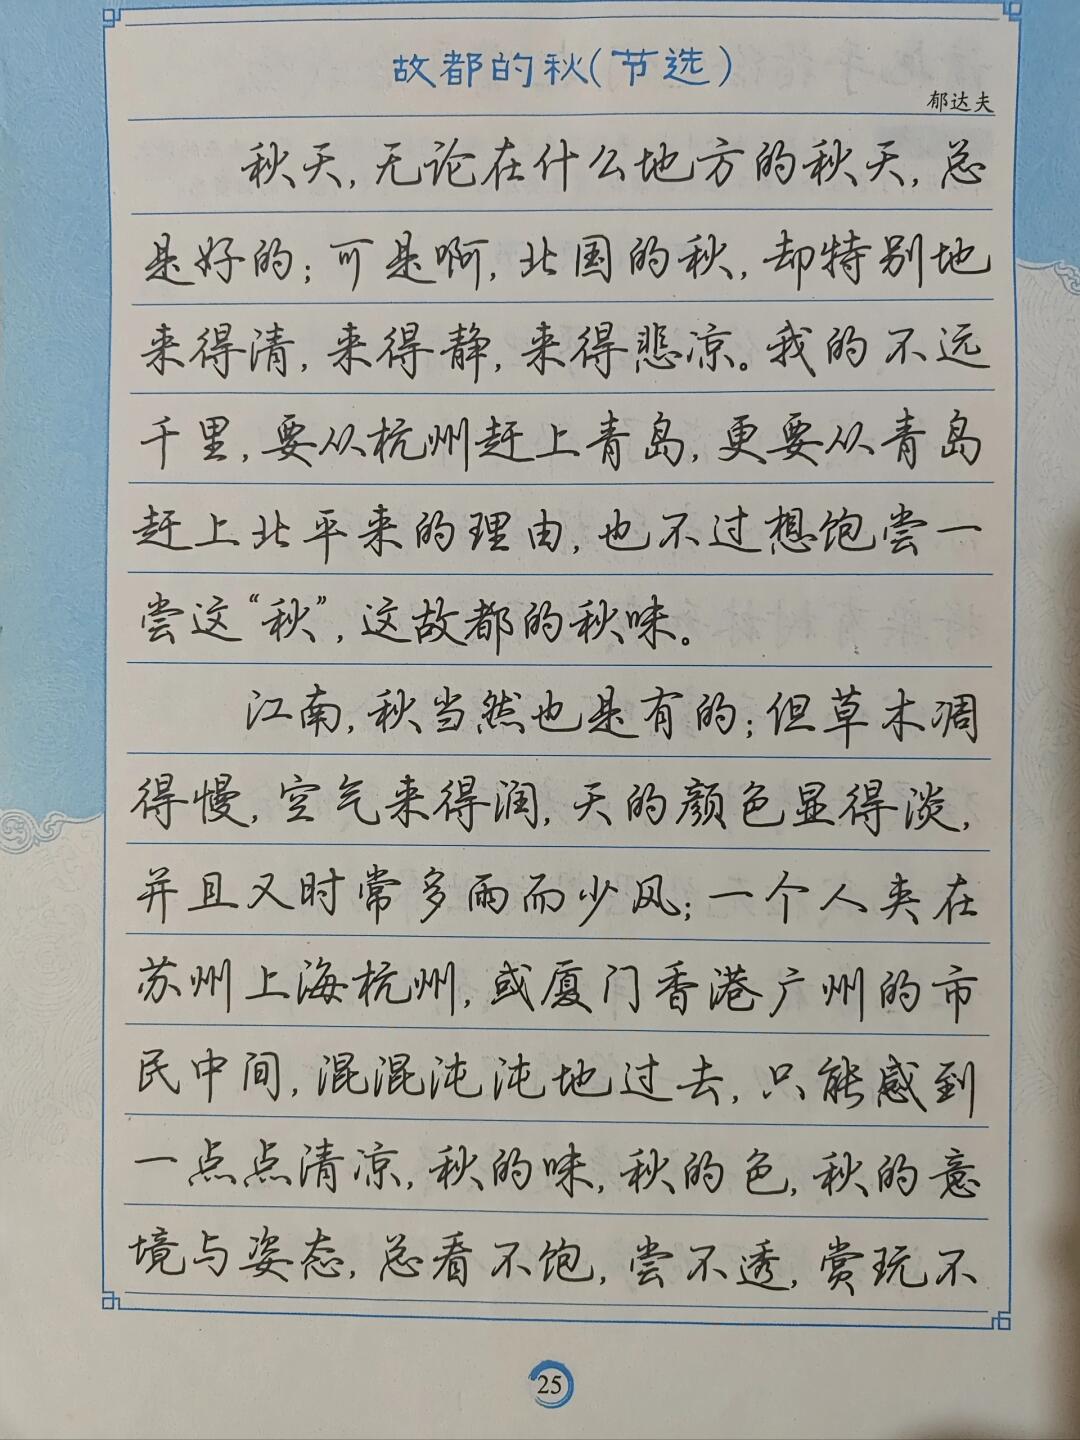 故都的秋(节选)
郁达夫
秋天,无论在什么地方的秋天,总
是好的;可是啊,北国的秋,却特别地
来得清,来得静,来得悲凉。我的不远
千里,要从杭州赶上青岛,更要从青岛
赶上北平来的理由,也不过想饱尝一
尝这“秋”,这故都的秋味。
江南,秋当然也是有的;但草木凋
得慢,空气来得润,天的颜色显得淡,
并且又时常多雨而少风;一个人夹在
苏州上海杭州,或厦门香港广州的市
民中间,混混沌沌地过去,只能感到
一点点清凉,秋的味,秋的色,秋的意
境与姿态,总看不饱,尝不透,赏玩不
25